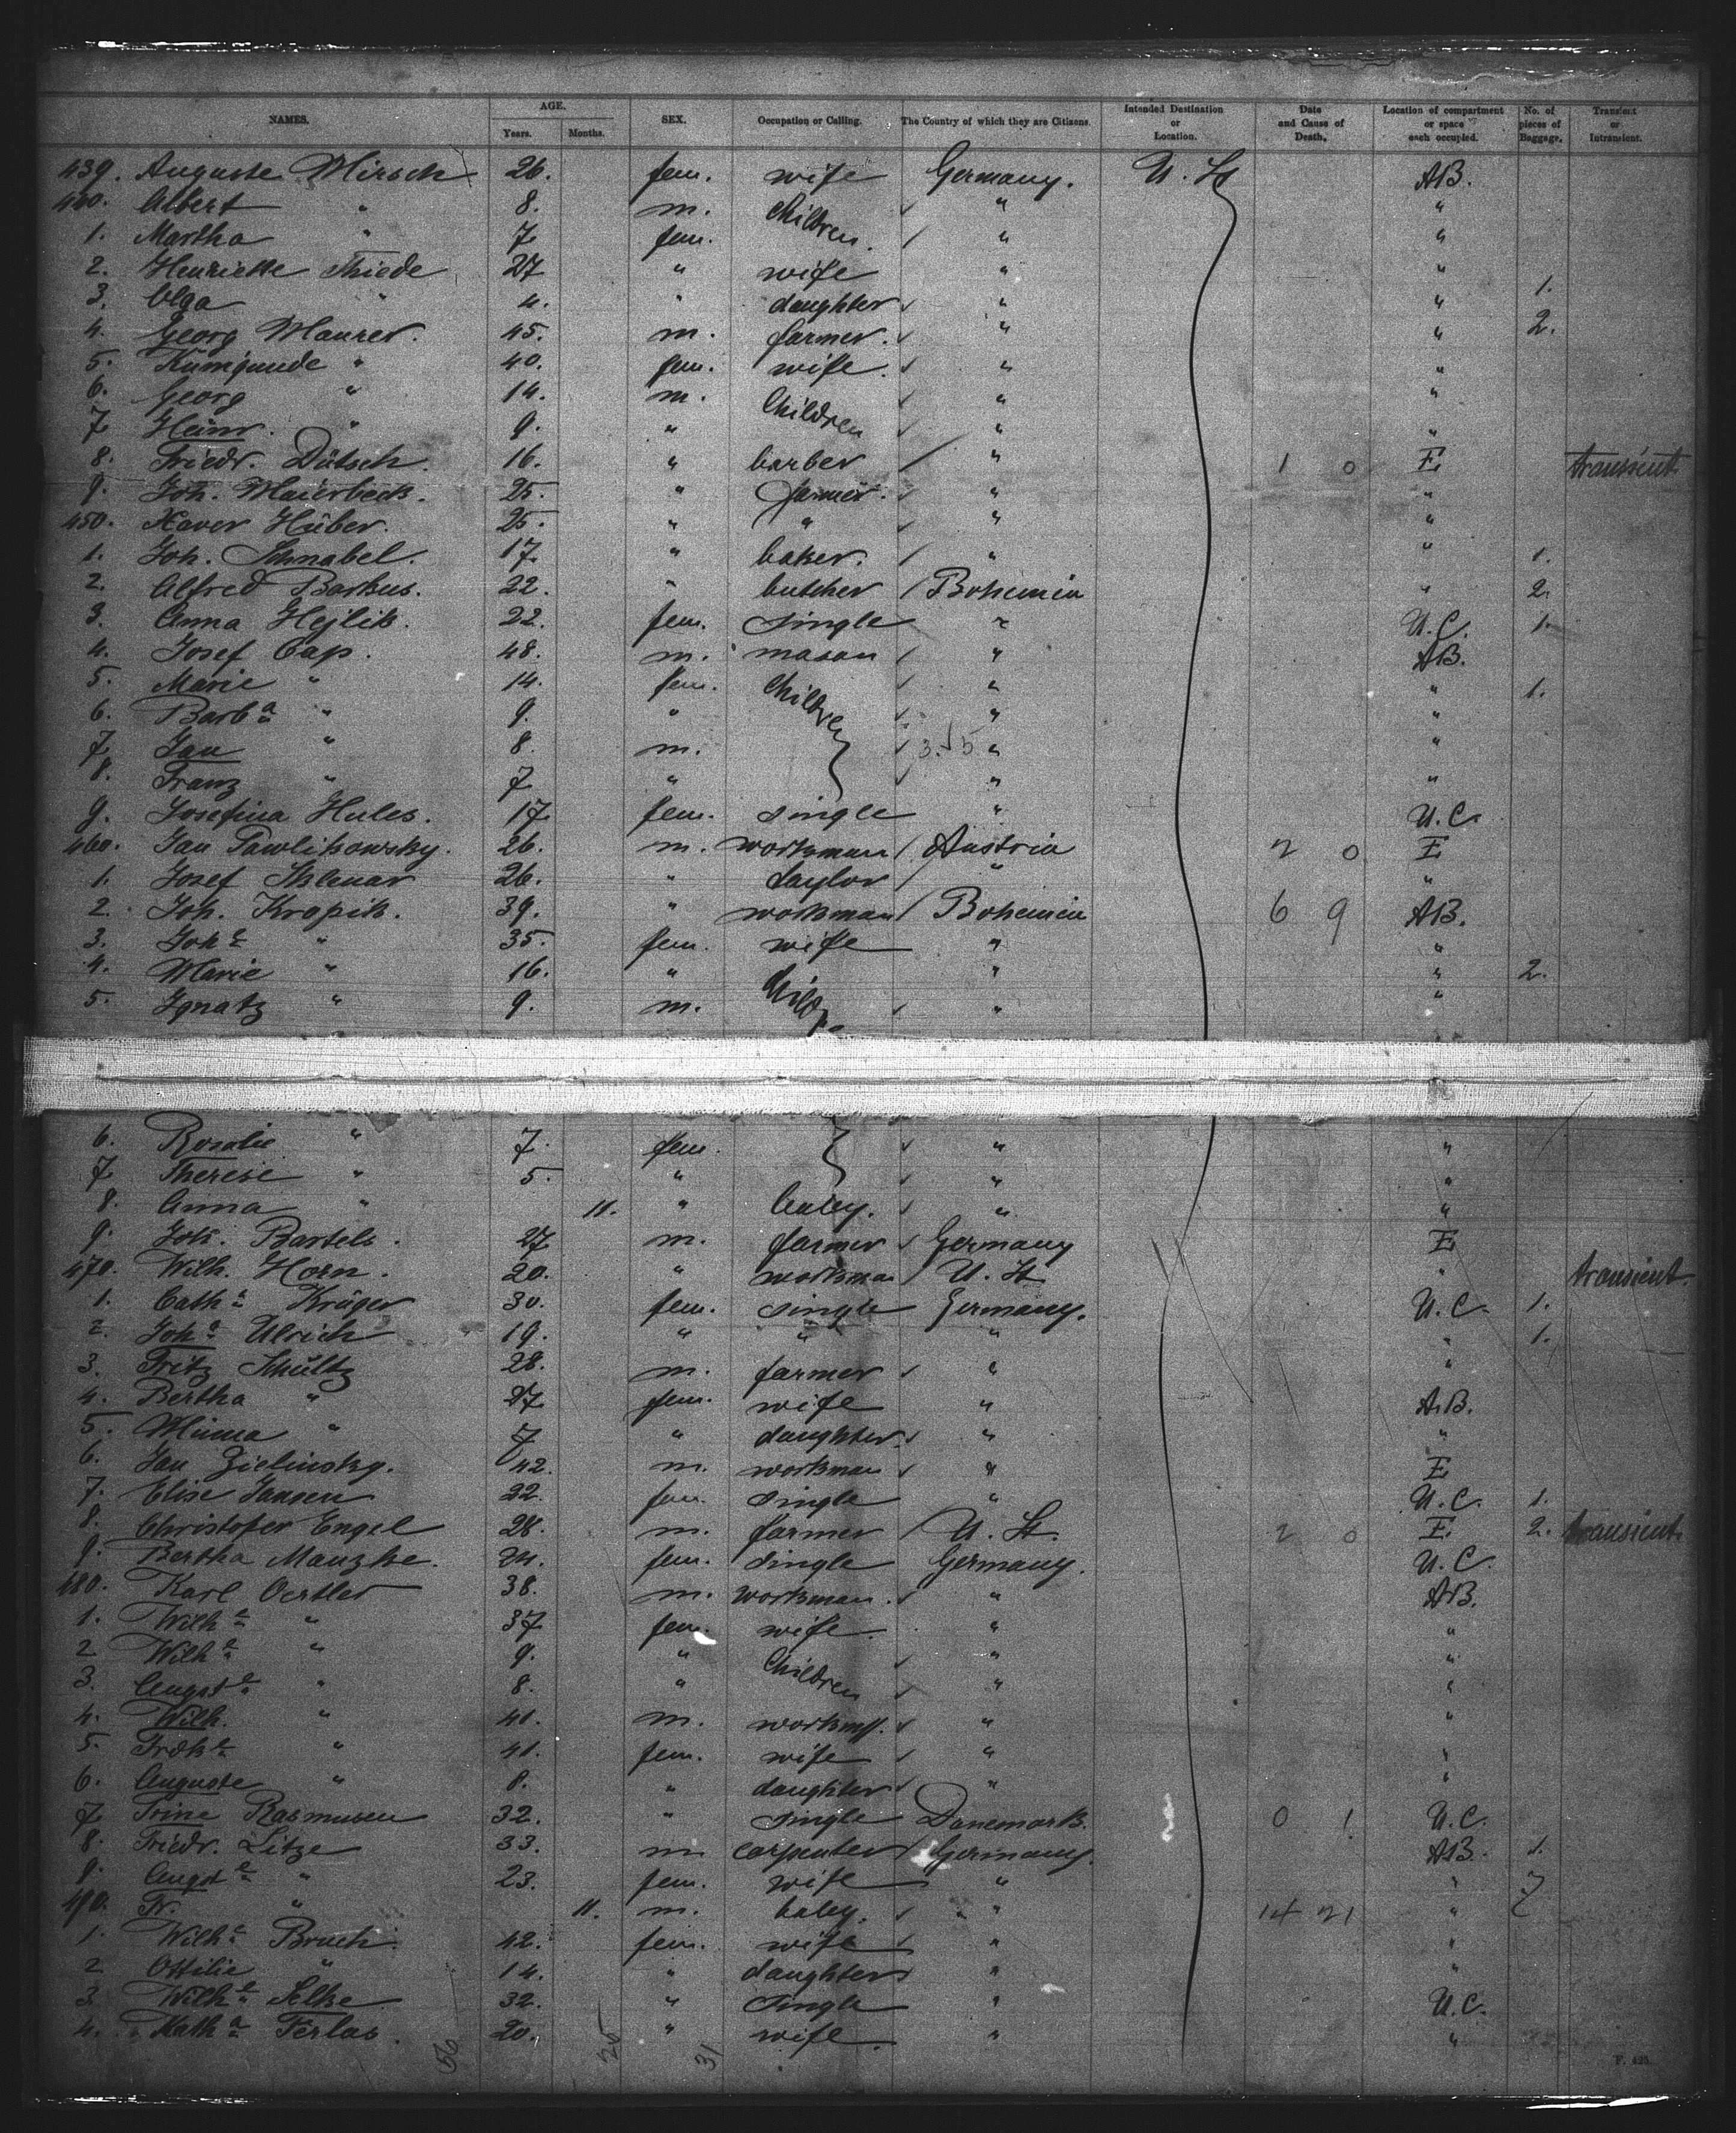 NAMES. AGE. Years. Months. SEX. Occupation or Calling. The Country of which they are Citizens. Intended Destination or Location. Date and Cause of Death. Location of compartment or space each occupied. No. of pieces of Baggage. Transient or Intransient.
439. Auguste Mirsch 26. fem. wife Germany. U. St AB.
440. Albert " 8. m. Children "  "
1. Martha " 7 fem. " "
2. Henriette Thiede 27 " wife " "
3. Olga " 4. " daughter " " 1.
4. Georg Maurer. 45. m. farmer. " " 2.
5. Kunigunde " 40. fem. wife. " "
6. Georg " 14. m. Children " "
7 Heinr. " 9. " " "
8. Friedr. Dütsch. 16. " barber " 1 0 E transient
9. Joh. Maierbeck. 25. " farmer. " "
450. Xaver Hüber. 25. " " " "
1. Joh. Schnabel. 17 " baker. " " 1.
2. Alfred Barkus. 22. " butcher Bohemia " 2.
3. Anna Hejlik. 22. fem. single " U.C. 1.
4. Josef Cap. 48. m. mason " AB.
5. Marie " 14. fem. Children " " 1.
6. Barba " 9. " " "
7 Jan " 8. m. 3.15 " "
8. Franz " 7 " " "
9. Josefina Hules. 17 fem. single " U.C.
460. Jan Pawlikowsky. 26. m. workman Austria 2 0 E
1. Josef Sklenar 26. " taylor " "
2. Joh. Kropik. 39. " workman Bohemia 6 9 AB.
3. Johe " 35. fem. wife " "
4. Marie " 16. " " " 2.
5. Ignatz " 9. m. " "
6. Rosalie " 7. fem. " "
7 Therese " 5. " " "
8. Anna " 11. " baby. " "
9. Joh. Bartels. 27 m. farmer Germany E
470. Wilh. Horn. 20. " workman U. St. " transient
1. Catha Krüger 30. fem. single Germany. U.C. 1.
2. Joha Ulrich 19. " " " " 1.
3. Fritz Schültz 28. m. farmer " "
4. Bertha " 27 fem. wife " A.B.
5. Minna " 7 " daughter " "
6. Jan Zielinsky. 42. m. workman " E
7. Elise Jansen 22. fem. single " U.C. 1.
8. Christofer Engel 28. m. farmer U. St. 2 0 E 2. transient
9. Bertha Manzke. 24. fem. single Germany. U.C.
480. Karl Oertler 38. m. workman. " AB.
1. Wilhe " 37 fem. wife. " "
2 Wilhe " 9. " Children " "
3. Augste " 8. " " "
4. Wilh. " 41. m. " "
5. Frdke " 41. fem. wife " "
6. Auguste " 8. " daughter " "
7 Trine Rasmusen 32. " single Danemark. 0 1 U.C.
8. Friedr. Litze 33. m carpenter Germany. AB. 1.
9. Augste " 23. fem. wife " "
490. Fr. " 11. m. baby. " 14 21 "
1. Wilhe Bruch. 42. fem. wife " "
2 Ottilie " 14. " daughter " "
3. Wilhe Selke 32. " single " U.C.
4. Katha Ferlas. 20. " wife. " "
56 25 31
F. 425.